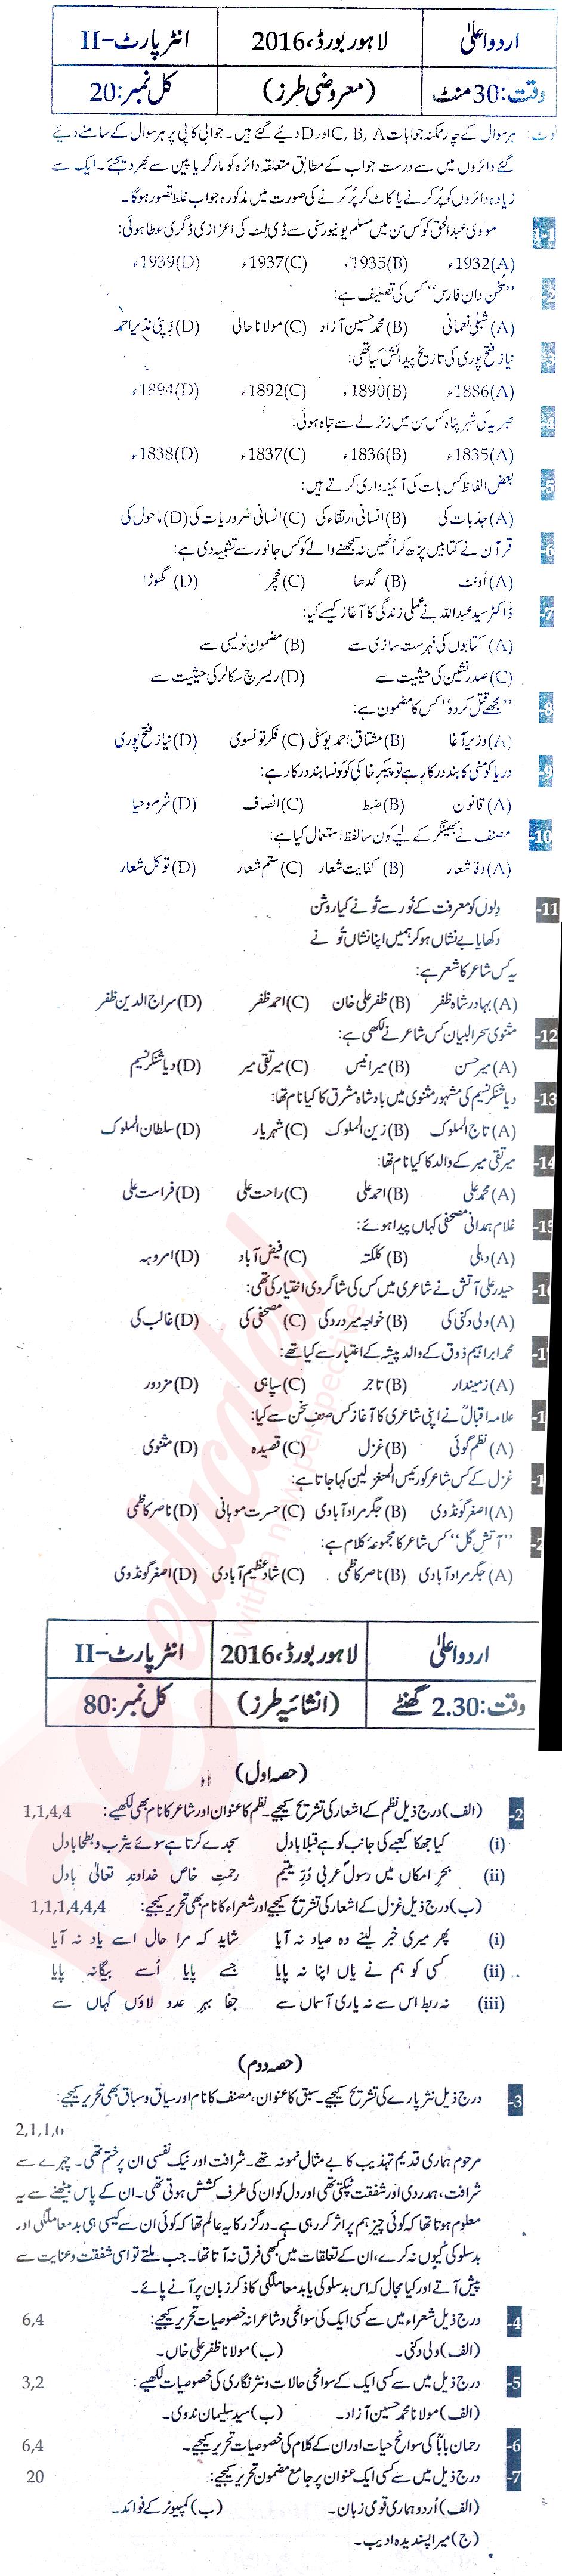 اردو اعلیٰ لاہور بورڈ، 2016 انٹر پارٹ-II
وقت: 30 منٹ (معروضی طرز) کل نمبر: 20
نوٹ: ہر سوال کے چار ممکنہ جوابات C, B, A اور D دیئے گئے ہیں۔ جوابی کاپی پر ہر سوال کے سامنے دیئے
گئے دائروں میں سے درست جواب کے مطابق متعلقہ دائرہ کو مارکر یا پین سے بھر دیجئے۔ ایک سے
زیادہ دائروں کو پُر کرنے یا کاٹ کر پُر کرنے کی صورت میں مذکورہ جواب غلط تصور ہوگا۔
1-1 مولوی عبدالحق کو کس سن میں مسلم یونیورسٹی سے ڈی لٹ کی اعزازی ڈگری عطا ہوئی:
(A) 1932ء (B) 1935ء (C) 1937ء (D) 1939ء
-2 ’’سخن دانِ فارس‘‘ کس کی تصنیف ہے:
(A) شبلی نعمانی (B) محمد حسین آزاد (C) مولانا حالی (D) ڈپٹی نذیر احمد
-3 نیاز فتح پوری کی تاریخ پیدائش کیا تھی:
(A) 1886ء (B) 1890ء (C) 1892ء (D) 1894ء
-4 طبریہ کی شہر پناہ کس سن میں زلزلے سے تباہ ہوئی:
(A) 1835ء (B) 1836ء (C) 1837ء (D) 1838ء
-5 بعض الفاظ کس بات کی آئینہ داری کرتے ہیں:
(A) جذبات کی (B) انسانی ارتقاء کی (C) انسانی ضروریات کی (D) ماحول کی
-6 قرآن نے کتابیں پڑھ کر انھیں نہ سمجھنے والے کو کس جانور سے تشبیہ دی ہے:
(A) اُونٹ (B) گدھا (C) خچر (D) گھوڑا
-7 ڈاکٹر سید عبداللہ نے عملی زندگی کا آغاز کیسے کیا:
(A) کتابوں کی فہرست سازی سے (B) مضمون نویسی سے
(C) صدر نشین کی حیثیت سے (D) ریسرچ سکالر کی حیثیت سے
-8 ’’مجھے قتل کر دو‘‘ کس کا مضمون ہے:
(A) وزیر آغا (B) مشتاق احمد یوسفی (C) فکر تونسوی (D) نیاز فتح پوری
-9 دریا کو مٹی کا بند درکار ہے تو پیکرِ خاکی کو کونسا بند درکار ہے:
(A) قانون (B) ضبط (C) انصاف (D) شرم و حیا
-10 مصنف نے جھینگر کے لیے کون سا لفظ استعمال کیا ہے:
(A) وفا شعار (B) کفایت شعار (C) ستم شعار (D) توکل شعار
-11 دِلوں کو معرفت کے نُور سے تُو نے کیا روشن
دکھایا بے نشاں ہو کر ہمیں اپنا نشاں تُو نے
یہ کس شاعر کا شعر ہے:
(A) بہادر شاہ ظفر (B) ظفر علی خان (C) احمد ظفر (D) سراج الدین ظفر
-12 مثنوی سحر البیان کس شاعر نے لکھی ہے:
(A) میر حسن (B) میر انیس (C) میر تقی میر (D) دیا شنکر نسیم
-13 دیا شنکر نسیم کی مشہور مثنوی میں بادشاہ مشرق کا کیا نام تھا:
(A) تاج الملوک (B) زین الملوک (C) شہریار (D) سلطان الملوک
-14 میر تقی میر کے والد کا کیا نام تھا:
(A) محمد علی (B) احمد علی (C) راحت علی (D) فراست علی
-15 غلام ہمدانی مصحفی کہاں پیدا ہوئے:
(A) دہلی (B) کلکتہ (C) فیض آباد (D) امروہہ
-1 حیدر علی آتش نے شاعری میں کس کی شاگردی اختیار کی تھی:
(A) ولی دکنی کی (B) خواجہ میر درد کی (C) مصحفی کی (D) غالب کی
-1 محمد ابراہیم ذوق کے والد پیشہ کے اعتبار سے کیا تھے:
(A) زمیندار (B) تاجر (C) سپاہی (D) مزدور
-1 علامہ اقبالؒ نے اپنی شاعری کا آغاز کس صنفِ سخن سے کیا:
(A) نظم گوئی (B) غزل (C) قصیدہ (D) مثنوی
-1 غزل کے کس شاعر کو رئیس المتغزلین کہا جاتا ہے:
(A) اصغر گونڈوی (B) جگر مراد آبادی (C) حسرت موہانی (D) ناصر کاظمی
-2 ’’آتشِ گل‘‘ کس شاعر کا مجموعۂ کلام ہے:
(A) جگر مراد آبادی (B) ناصر کاظمی (C) شاد عظیم آبادی (D) اصغر گونڈوی
اردو اعلیٰ لاہور بورڈ، 2016 انٹر پارٹ-II
وقت: 2.30 گھنٹے (انشائیہ طرز) کل نمبر: 80
(حصہ اول)
-2 (الف) درج ذیل نظم کے اشعار کی تشریح کیجیے۔ نظم کا عنوان اور شاعر کا نام بھی لکھیے: 1,1,4,4
(i) کیا جھکا کعبے کی جانب کو ہے قبلا بادل سجدے کرتا ہے سوئے یثرب و بطحا بادل
(ii) بحرِ امکاں میں رسولِ عربی دُرِّ یتیم رحمتِ خاص خداوندِ تعالیٰ بادل
(ب) درج ذیل غزل کے اشعار کی تشریح کیجیے اور شعراء کا نام بھی تحریر کیجیے: 1,1,1,4,4,4
(i) پھر میری خبر لینے وہ صیاد نہ آیا شاید کہ مرا حال اسے یاد نہ آیا
(ii) کسی کو ہم نے یاں اپنا نہ پایا جسے پایا اُسے بیگانہ پایا
(iii) نہ ربط اس سے نہ یاری آسماں سے جفا بہرِ عدو لاؤں کہاں سے
(حصہ دوم)
-3 درج ذیل نثر پارے کی تشریح کیجیے۔ سبق کا عنوان، مصنف کا نام اور سیاق و سباق بھی تحریر کیجیے:
2,1,1,6
مرحوم ہماری قدیم تہذیب کا بے مثال نمونہ تھے۔ شرافت اور نیک نفسی ان پر ختم تھی۔ چہرے سے
شرافت، ہمدردی اور شفقت ٹپکتی تھی اور دل کو ان کی طرف کشش ہوتی تھی۔ ان کے پاس بیٹھنے سے یہ
معلوم ہوتا تھا کہ کوئی چیز ہم پر اثر کر رہی ہے۔ درگزر کا یہ عالم تھا کہ کوئی ان سے کیسی ہی بد معاملگی اور
بدسلوکی کیوں نہ کرے، ان کے تعلقات میں کبھی فرق نہ آتا تھا۔ جب ملتے تو اسی شفقت و عنایت سے
پیش آتے اور کیا مجال کہ اس بدسلوکی یا بدمعاملگی کا ذکر زبان پر آنے پائے۔
-4 درج ذیل شعراء میں سے کسی ایک کی سوانحی و شاعرانہ خصوصیات تحریر کیجیے: 6,4
(الف) ولی دکنی۔ (ب) مولانا ظفر علی خاں۔
-5 درج ذیل میں سے کسی ایک کے سوانحی حالات و نثر نگاری کی خصوصیات لکھیے: 3,2
(الف) مولانا محمد حسین آزاد۔ (ب) سید سلیمان ندوی۔
-6 رحمان باباؒ کی سوانح حیات اور ان کے کلام کی خصوصیات تحریر کیجیے۔ 6,4
-7 درج ذیل میں سے کسی ایک عنوان پر جامع مضمون تحریر کیجیے: 20
(الف) اُردو ہماری قومی زبان۔ (ب) کمپیوٹر کے فوائد۔
(ج) میرا پسندیدہ ادیب۔